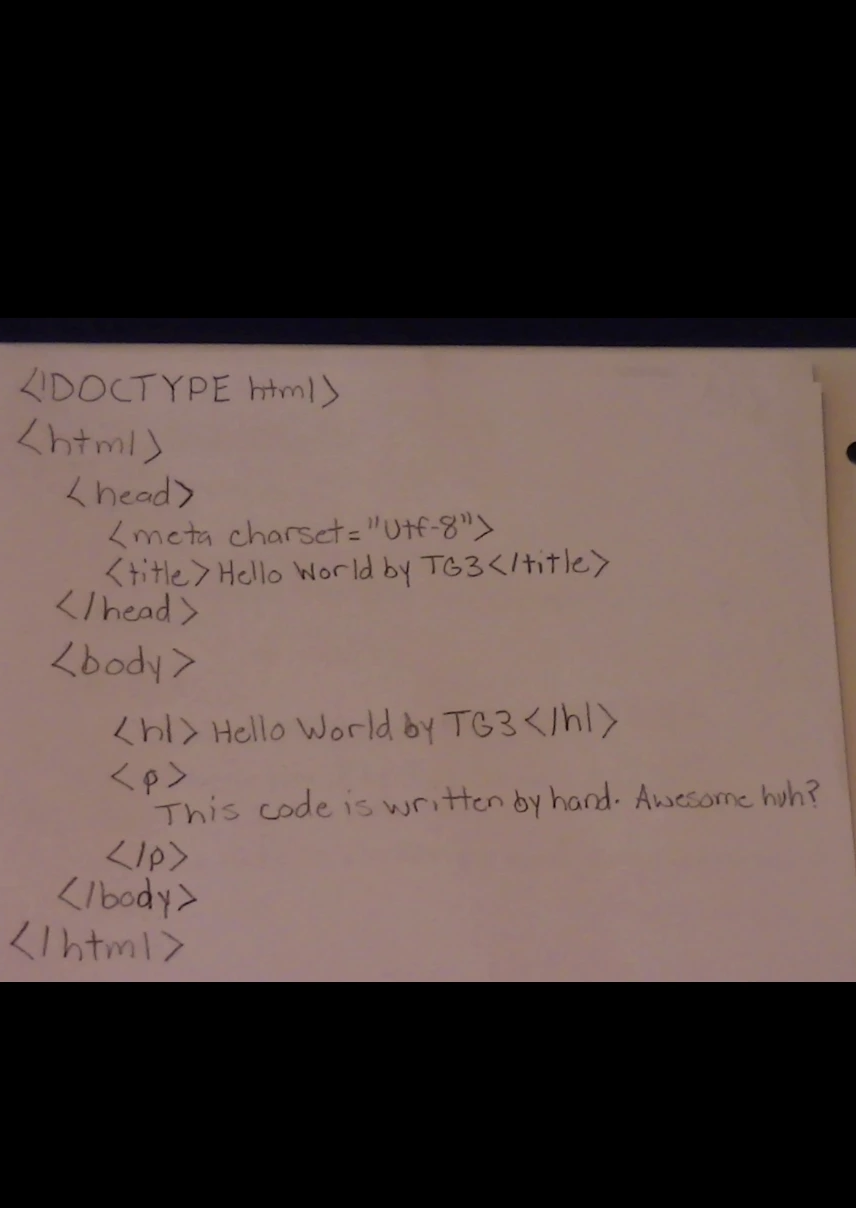 <!DOCTYPE html>
<html>
<head>
<meta charset="Utf-8">
<title>Hello World by TG3</title>
</head>
<body>
<h1>Hello World by TG3</h1>
<p>
This code is written by hand. Awesome huh?
</p>
</body>
</html>